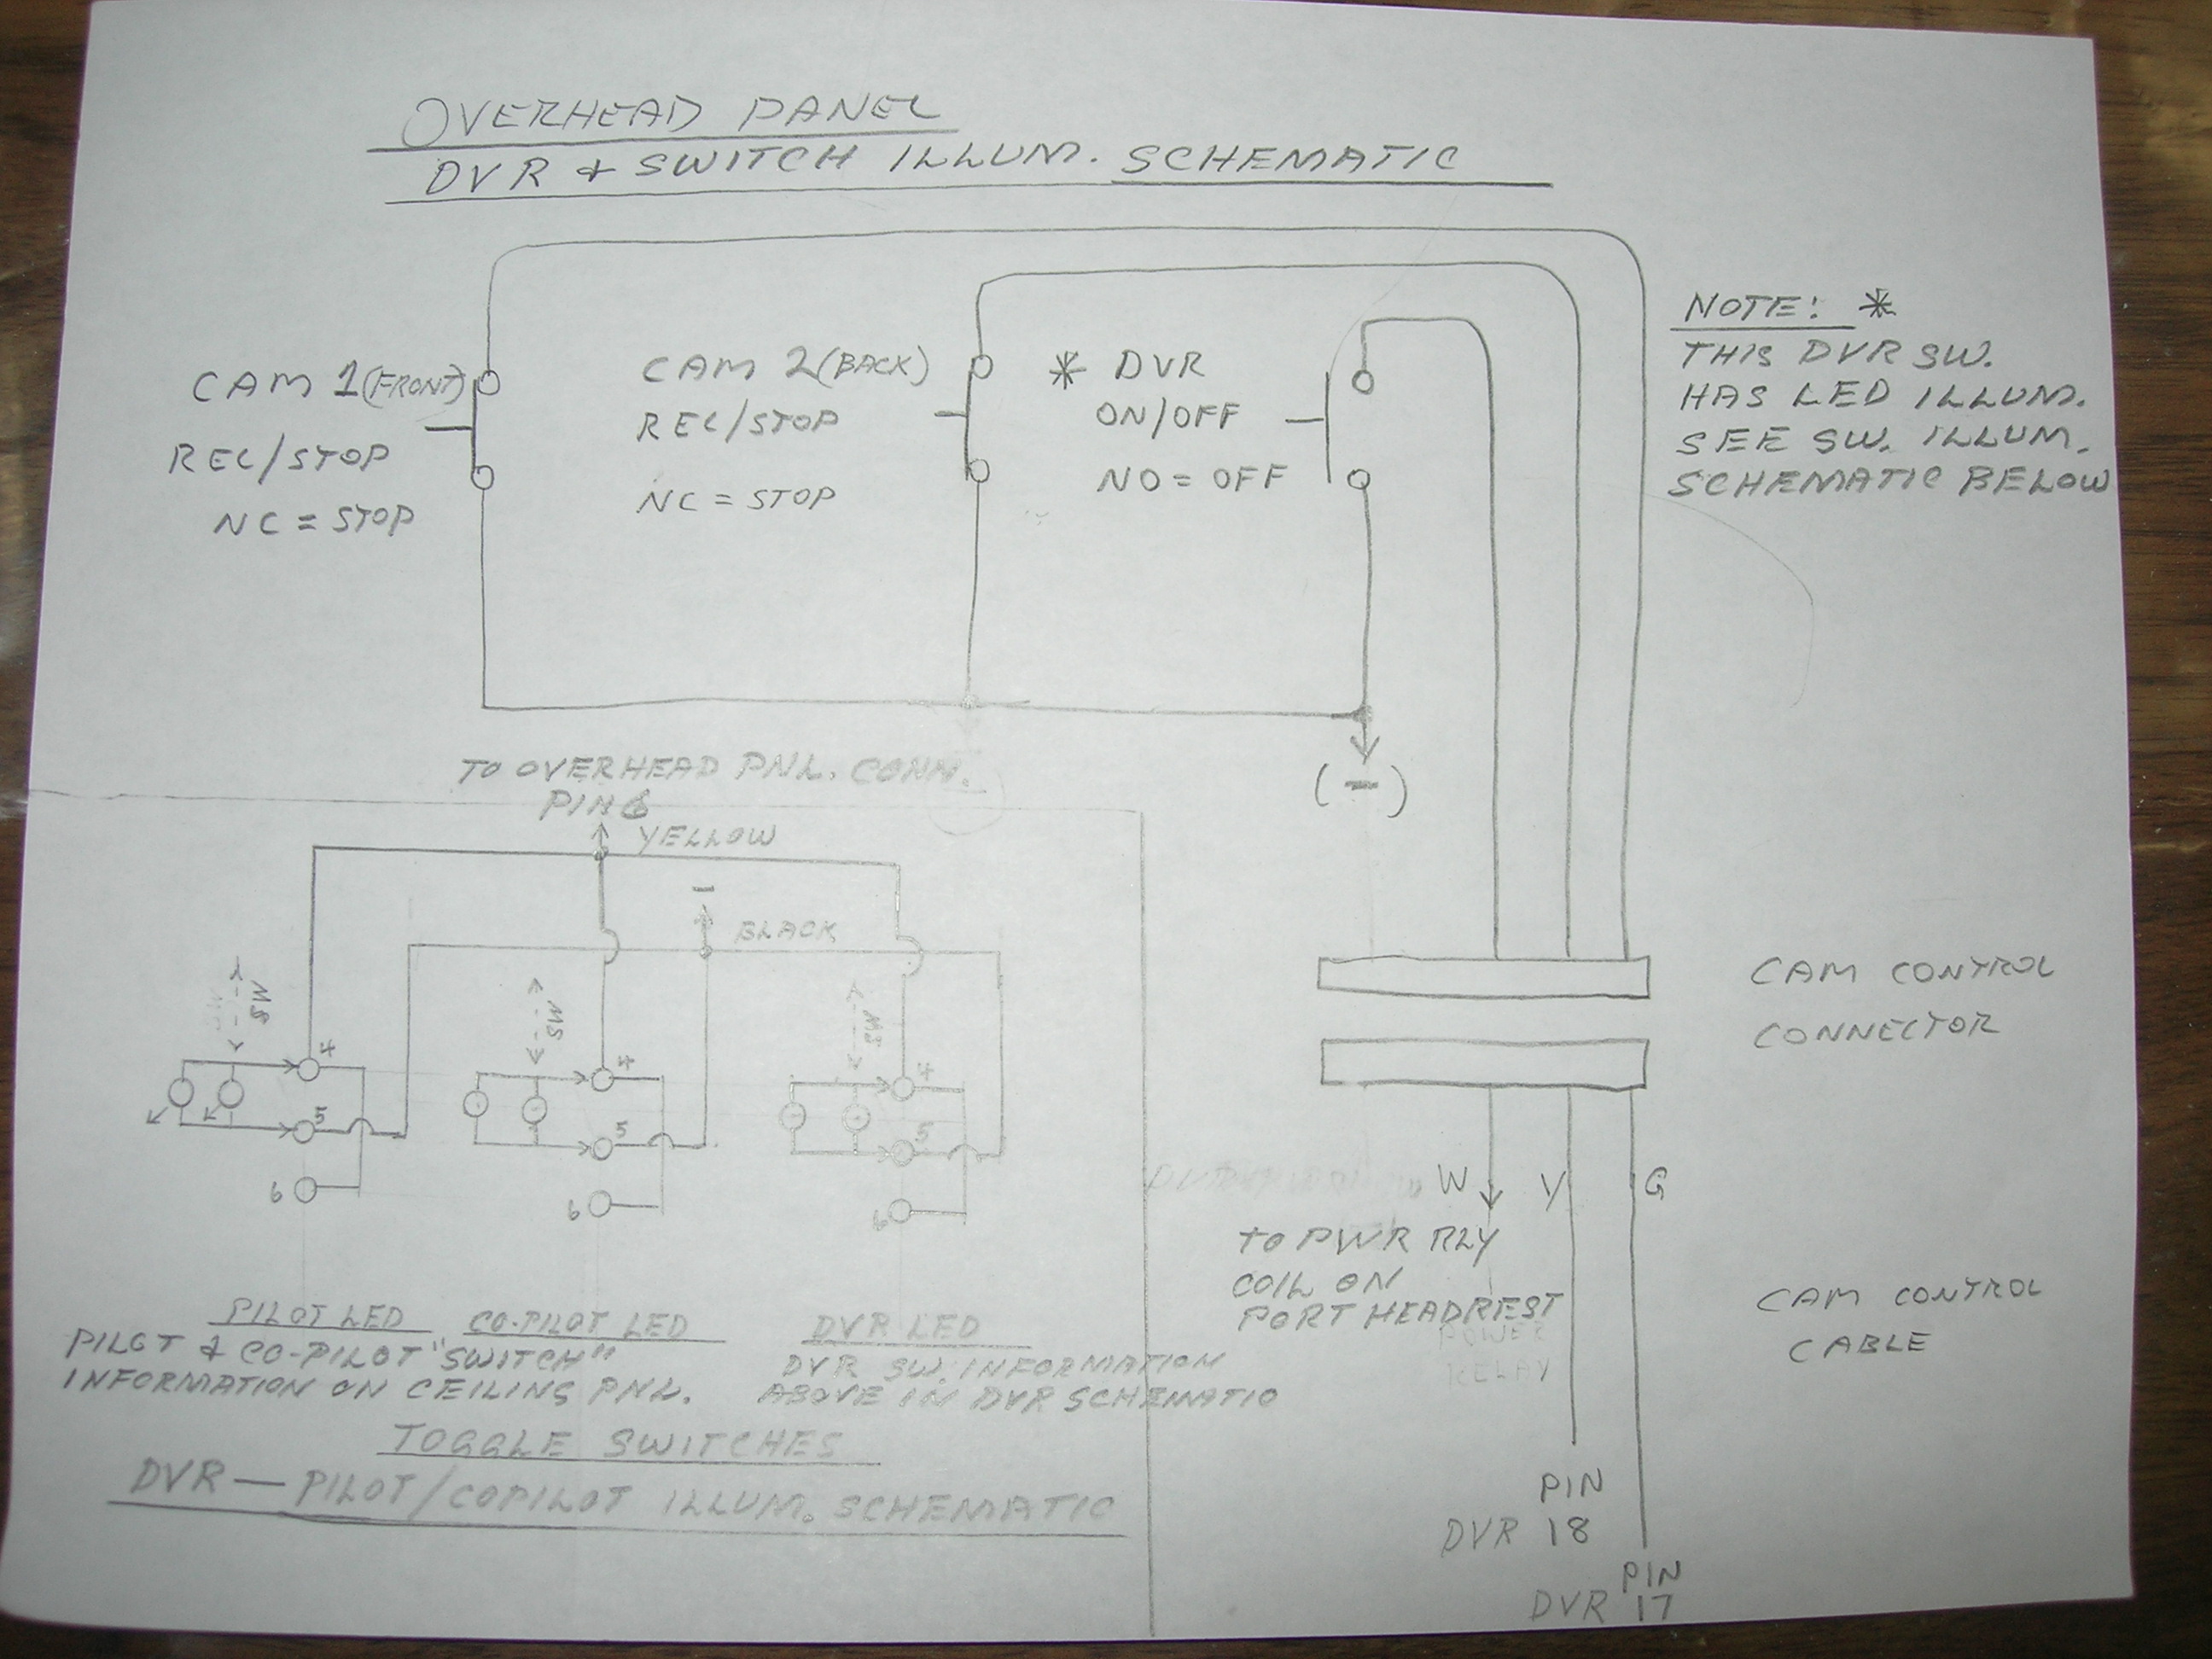 OVERHEAD PANEL
DVR & SWITCH ILLUM. SCHEMATIC
CAM 1 (FRONT)
REC/STOP
NC = STOP
CAM 2 (BACK)
REC/STOP
NC = STOP
* DVR
ON/OFF
NO = OFF
NOTE: *
THIS DVR SW.
HAS LED ILLUM.
SEE SW. ILLUM.
SCHEMATIC BELOW
(-)
TO OVERHEAD PNL. CONN.
PIN 6
YELLOW
-
BLACK
SW
SW
SW
4
5
6
4
5
6
4
5
6
PILOT LED
CO-PILOT LED
DVR LED
PILOT & CO-PILOT "SWITCH"
INFORMATION ON CEILING PNL.
DVR SW. INFORMATION
ABOVE IN DVR SCHEMATIC
TOGGLE SWITCHES
DVR — PILOT/COPILOT ILLUM. SCHEMATIC
CAM CONTROL
CONNECTOR
W
Y
G
TO PWR RLY
COIL ON
PORT HEADREST
POWER
RELAY
CAM CONTROL
CABLE
PIN
DVR 18
PIN
DVR 17